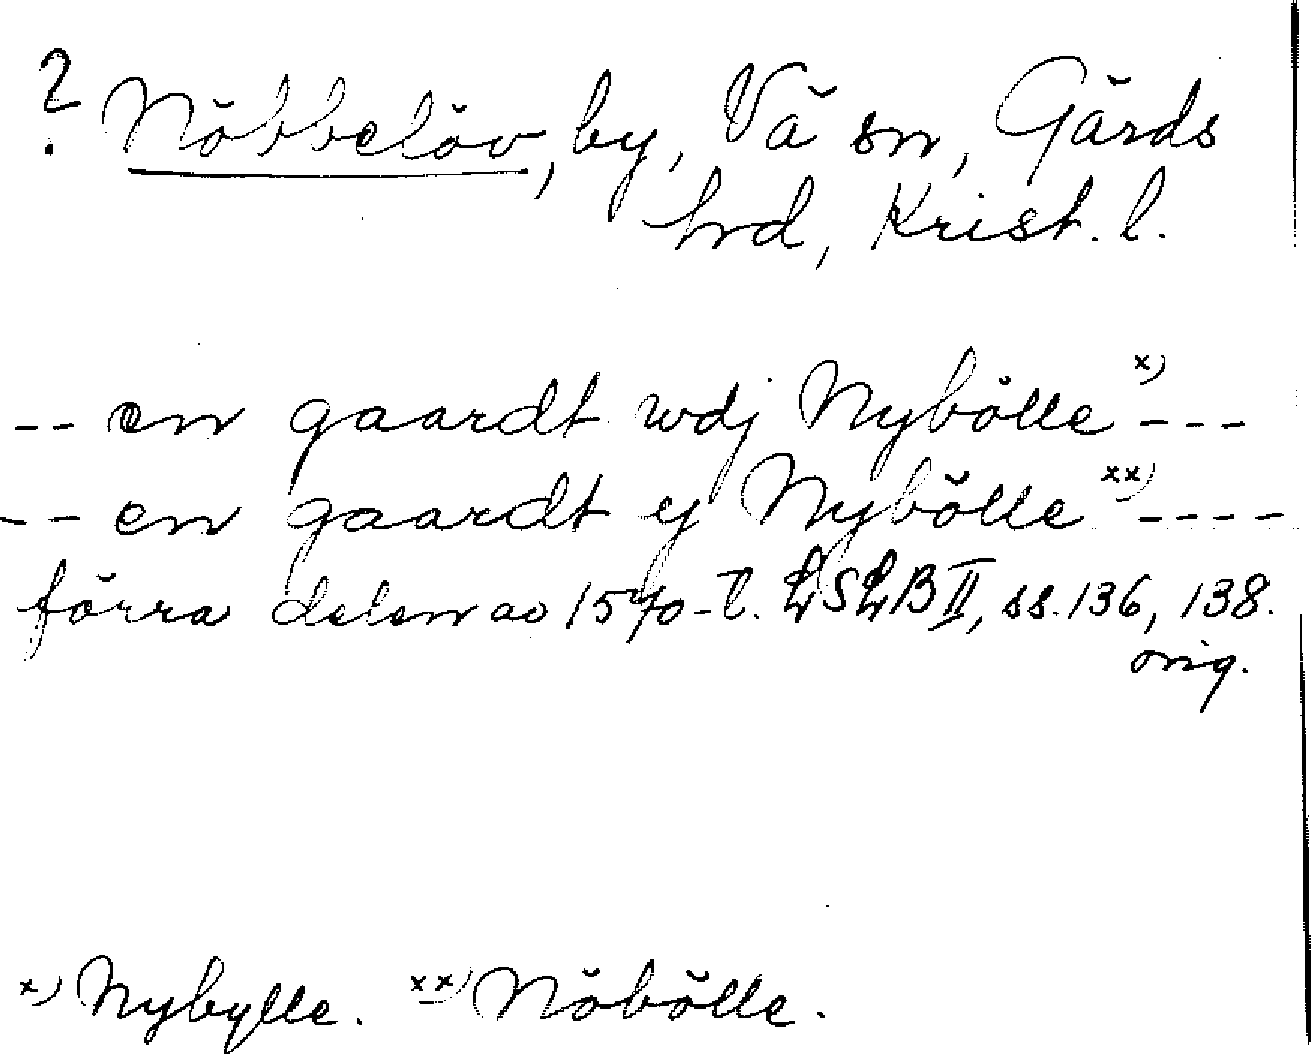 ? Nöbbelöv, by, Vä sn, Gärds
hrd, Krist. l.
-- en gaardt wdj Nybölle x) ---
-- en gaardt ij Nybölle xx) ----
förra delen av 1570-t. LSLB II, ss. 136, 138.
orig.
x) Nybylle. xx) Nöbölle.